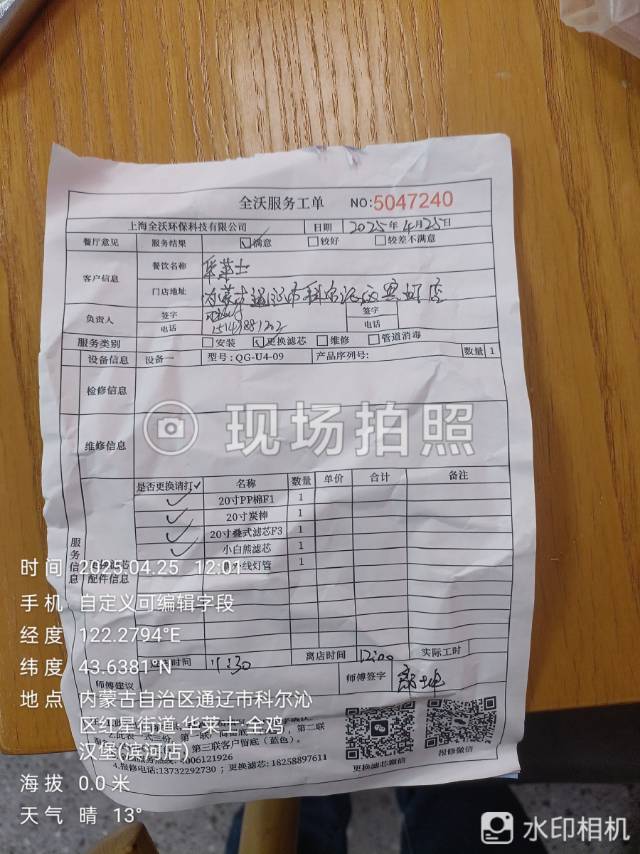 全沃服务工单 NO:5047240
上海全沃环保科技有限公司 日期 2025年4月25日
餐厅意见 服务结果 ☑满意 □较好 □较差不满意
客户信息 餐饮名称 华莱士
门店地址 内蒙古通辽市科尔沁区
负责人 签字 签字
电话 电话
服务类别 □安装 ☑更换滤芯 □维修 □管道消毒
设备信息 设备一 型号:QG-U4-09 产品序列号: 数量 1
检修信息
现场拍照
维修信息
是否更换请打✓ 名称 数量 单价 合计 备注
✓ 20寸PP棉F1 1
✓ 20寸炭棒 1
✓ 20寸叠式滤芯F3 1
✓ 小白熊滤芯 1
外线灯管 1
服务信息
配件信息
时间 11:30 离店时间 12:00 实际工时
师傅建议 师傅签字
第二联
第三联客户留底(蓝色)。
4006121926
4.报修电话:13732292730 ; 更换滤芯: 18258897611
更换滤芯微信 报修微信
时间 2025.04.25 12:01
手机 自定义可编辑字段
经度 122.2794°E
纬度 43.6381°N
地点 内蒙古自治区通辽市科尔沁
区红星街道·华莱士·全鸡
汉堡(滨河店)
海拔 0.0 米
天气 晴 13°
水印相机